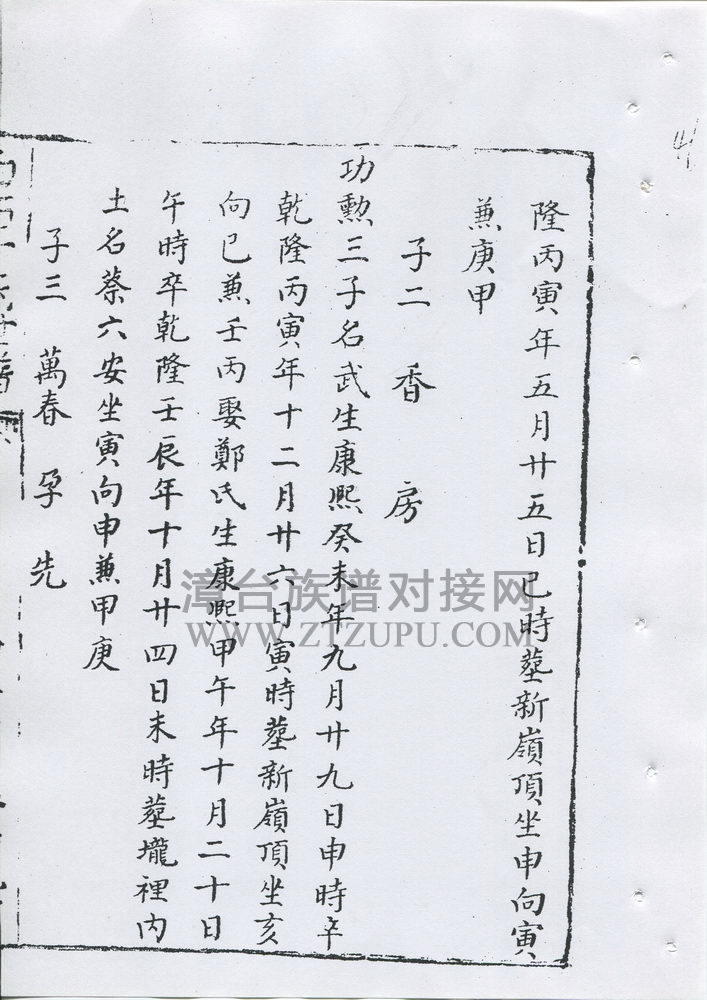 隆丙寅年五月廿五日巳時塟新嶺頂坐申向寅
兼庚甲
子二 香 房
功勲三子名武生康熙癸未年九月廿九日申時卒
乾隆丙寅年十二月廿六日寅時塟新嶺頂坐亥
向巳兼壬丙娶鄭氏生康熙甲午年十月二十日
午時卒乾隆壬辰年十月廿四日未時塟壠裡内
土名蔡六安坐寅向申兼甲庚
子三 萬春 孕 先
漳台族谱对接网
WWW.ZTZUPU.COM